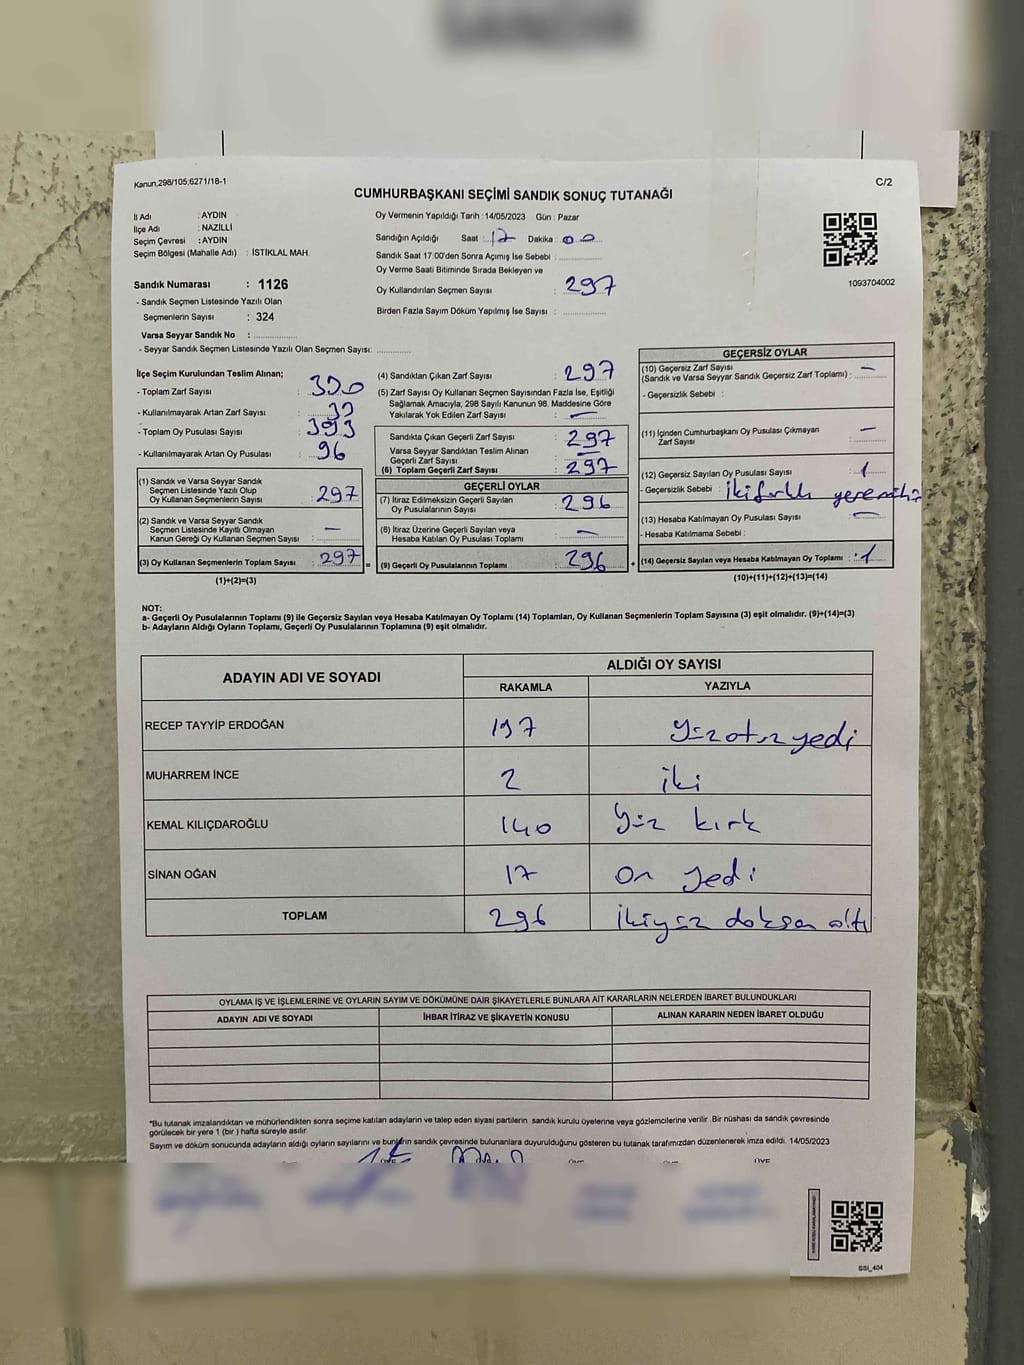 SANDIK
Kanun,298/105,6271/18-1
C/2
CUMHURBAŞKANI SEÇİMİ SANDIK SONUÇ TUTANAĞI
İl Adı : AYDIN
İlçe Adı : NAZİLLİ
Seçim Çevresi : AYDIN
Seçim Bölgesi (Mahalle Adı) : İSTİKLAL MAH.
Oy Vermenin Yapıldığı Tarih : 14/05/2023 Gün : Pazar
Sandığın Açıldığı Saat : 17 Dakika : 00
Sandık Saat 17:00'den Sonra Açımış İse Sebebi :
Oy Verme Saati Bitiminde Sırada Bekleyen ve
Oy Kullandırılan Seçmen Sayısı : 297
Birden Fazla Sayım Döküm Yapılmış İse Sayısı :
1093704002
Sandık Numarası : 1126
- Sandık Seçmen Listesinde Yazılı Olan
Seçmenlerin Sayısı : 324
Varsa Seyyar Sandık No :
- Seyyar Sandık Seçmen Listesinde Yazılı Olan Seçmen Sayısı:
İlçe Seçim Kurulundan Teslim Alınan;
- Toplam Zarf Sayısı :
- Kullanılmayarak Artan Zarf Sayısı :
- Toplam Oy Pusulası Sayısı : 393
- Kullanılmayarak Artan Oy Pusulası : 96
(1) Sandık ve Varsa Seyyar Sandık
Seçmen Listesinde Yazılı Olup
Oy Kullanan Seçmenlerin Sayısı : 297
(2) Sandık ve Varsa Seyyar Sandık
Seçmen Listesinde Kayıtlı Olmayan
Kanun Gereği Oy Kullanan Seçmen Sayısı : —
(3) Oy Kullanan Seçmenlerin Toplam Sayısı : 297
(1)+(2)=(3)
=
(4) Sandıktan Çıkan Zarf Sayısı : 297
(5) Zarf Sayısı Oy Kullanan Seçmen Sayısından Fazla İse, Eşitliği
Sağlamak Amacıyla, 298 Sayılı Kanunun 98. Maddesine Göre
Yakılarak Yok Edilen Zarf Sayısı : —
Sandıkta Çıkan Geçerli Zarf Sayısı : 297
Varsa Seyyar Sandıktan Teslim Alınan
Geçerli Zarf Sayısı : —
(6) Toplam Geçerli Zarf Sayısı : 297
GEÇERLİ OYLAR
(7) İtiraz Edilmeksizin Geçerli Sayılan
Oy Pusulalarının Sayısı : 296
(8) İtiraz Üzerine Geçerli Sayılan veya
Hesaba Katılan Oy Pusulası Toplamı : —
(9) Geçerli Oy Pusulalarının Toplamı : 296
+
GEÇERSİZ OYLAR
(10) Geçersiz Zarf Sayısı
(Sandık ve Varsa Seyyar Sandık Geçersiz Zarf Toplamı) : —
- Geçersizlik Sebebi :
(11) İçinden Cumhurbaşkanı Oy Pusulası Çıkmayan
Zarf Sayısı : —
(12) Geçersiz Sayılan Oy Pusulası Sayısı : 1
- Geçersizlik Sebebi : İki farklı yere
(13) Hesaba Katılmayan Oy Pusulası Sayısı : —
- Hesaba Katılmama Sebebi :
(14) Geçersiz Sayılan veya Hesaba Katılmayan Oy Toplamı : 1
(10)+(11)+(12)+(13)=(14)
NOT:
a- Geçerli Oy Pusulalarının Toplamı (9) ile Geçersiz Sayılan veya Hesaba Katılmayan Oy Toplamı (14) Toplamları, Oy Kullanan Seçmenlerin Toplam Sayısına (3) eşit olmalıdır. (9)+(14)=(3)
b- Adayların Aldığı Oyların Toplamı, Geçerli Oy Pusulalarının Toplamına (9) eşit olmalıdır.
ADAYIN ADI VE SOYADI
ALDIĞI OY SAYISI
RAKAMLA YAZIYLA
RECEP TAYYİP ERDOĞAN 137 yüzotuzyedi
MUHARREM İNCE 2 iki
KEMAL KILIÇDAROĞLU 140 yüz kırk
SİNAN OĞAN 17 on yedi
TOPLAM 296 ikiyüz doksan altı
OYLAMA İŞ VE İŞLEMLERİNE VE OYLARIN SAYIM VE DÖKÜMÜNE DAİR ŞİKAYETLERLE BUNLARA AİT KARARLARIN NELERDEN İBARET BULUNDUKLARI
ADAYIN ADI VE SOYADI İHBAR İTİRAZ VE ŞİKAYETİN KONUSU ALINAN KARARIN NEDEN İBARET OLDUĞU
*Bu tutanak imzalandıktan ve mühürlendikten sonra seçime katılan adayların ve talep eden siyasi partilerin sandık kurulu üyelerine veya gözlemcilerine verilir. Bir nüshası da sandık çevresinde
görülecek bir yere 1 (bir) hafta süreyle asılır.
Sayım ve döküm sonucunda adayların aldığı oyların sayılarını ve bunların sandık çevresinde bulunanlara duyurulduğunu gösteren bu tutanak tarafımızdan düzenlenerek imza edildi. 14/05/2023
SSİ_404